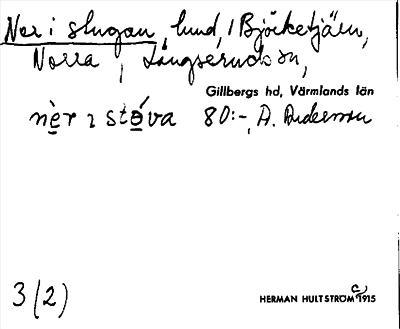 Ner i stugan, lund, i Björketjärn,
Norra, Långserudssn,
Gillbergs hd, Värmlands län
nèr ı ste̩va 80:-, A. Anderson
3 (2)
HERMAN HULTSTRÖM C 1915